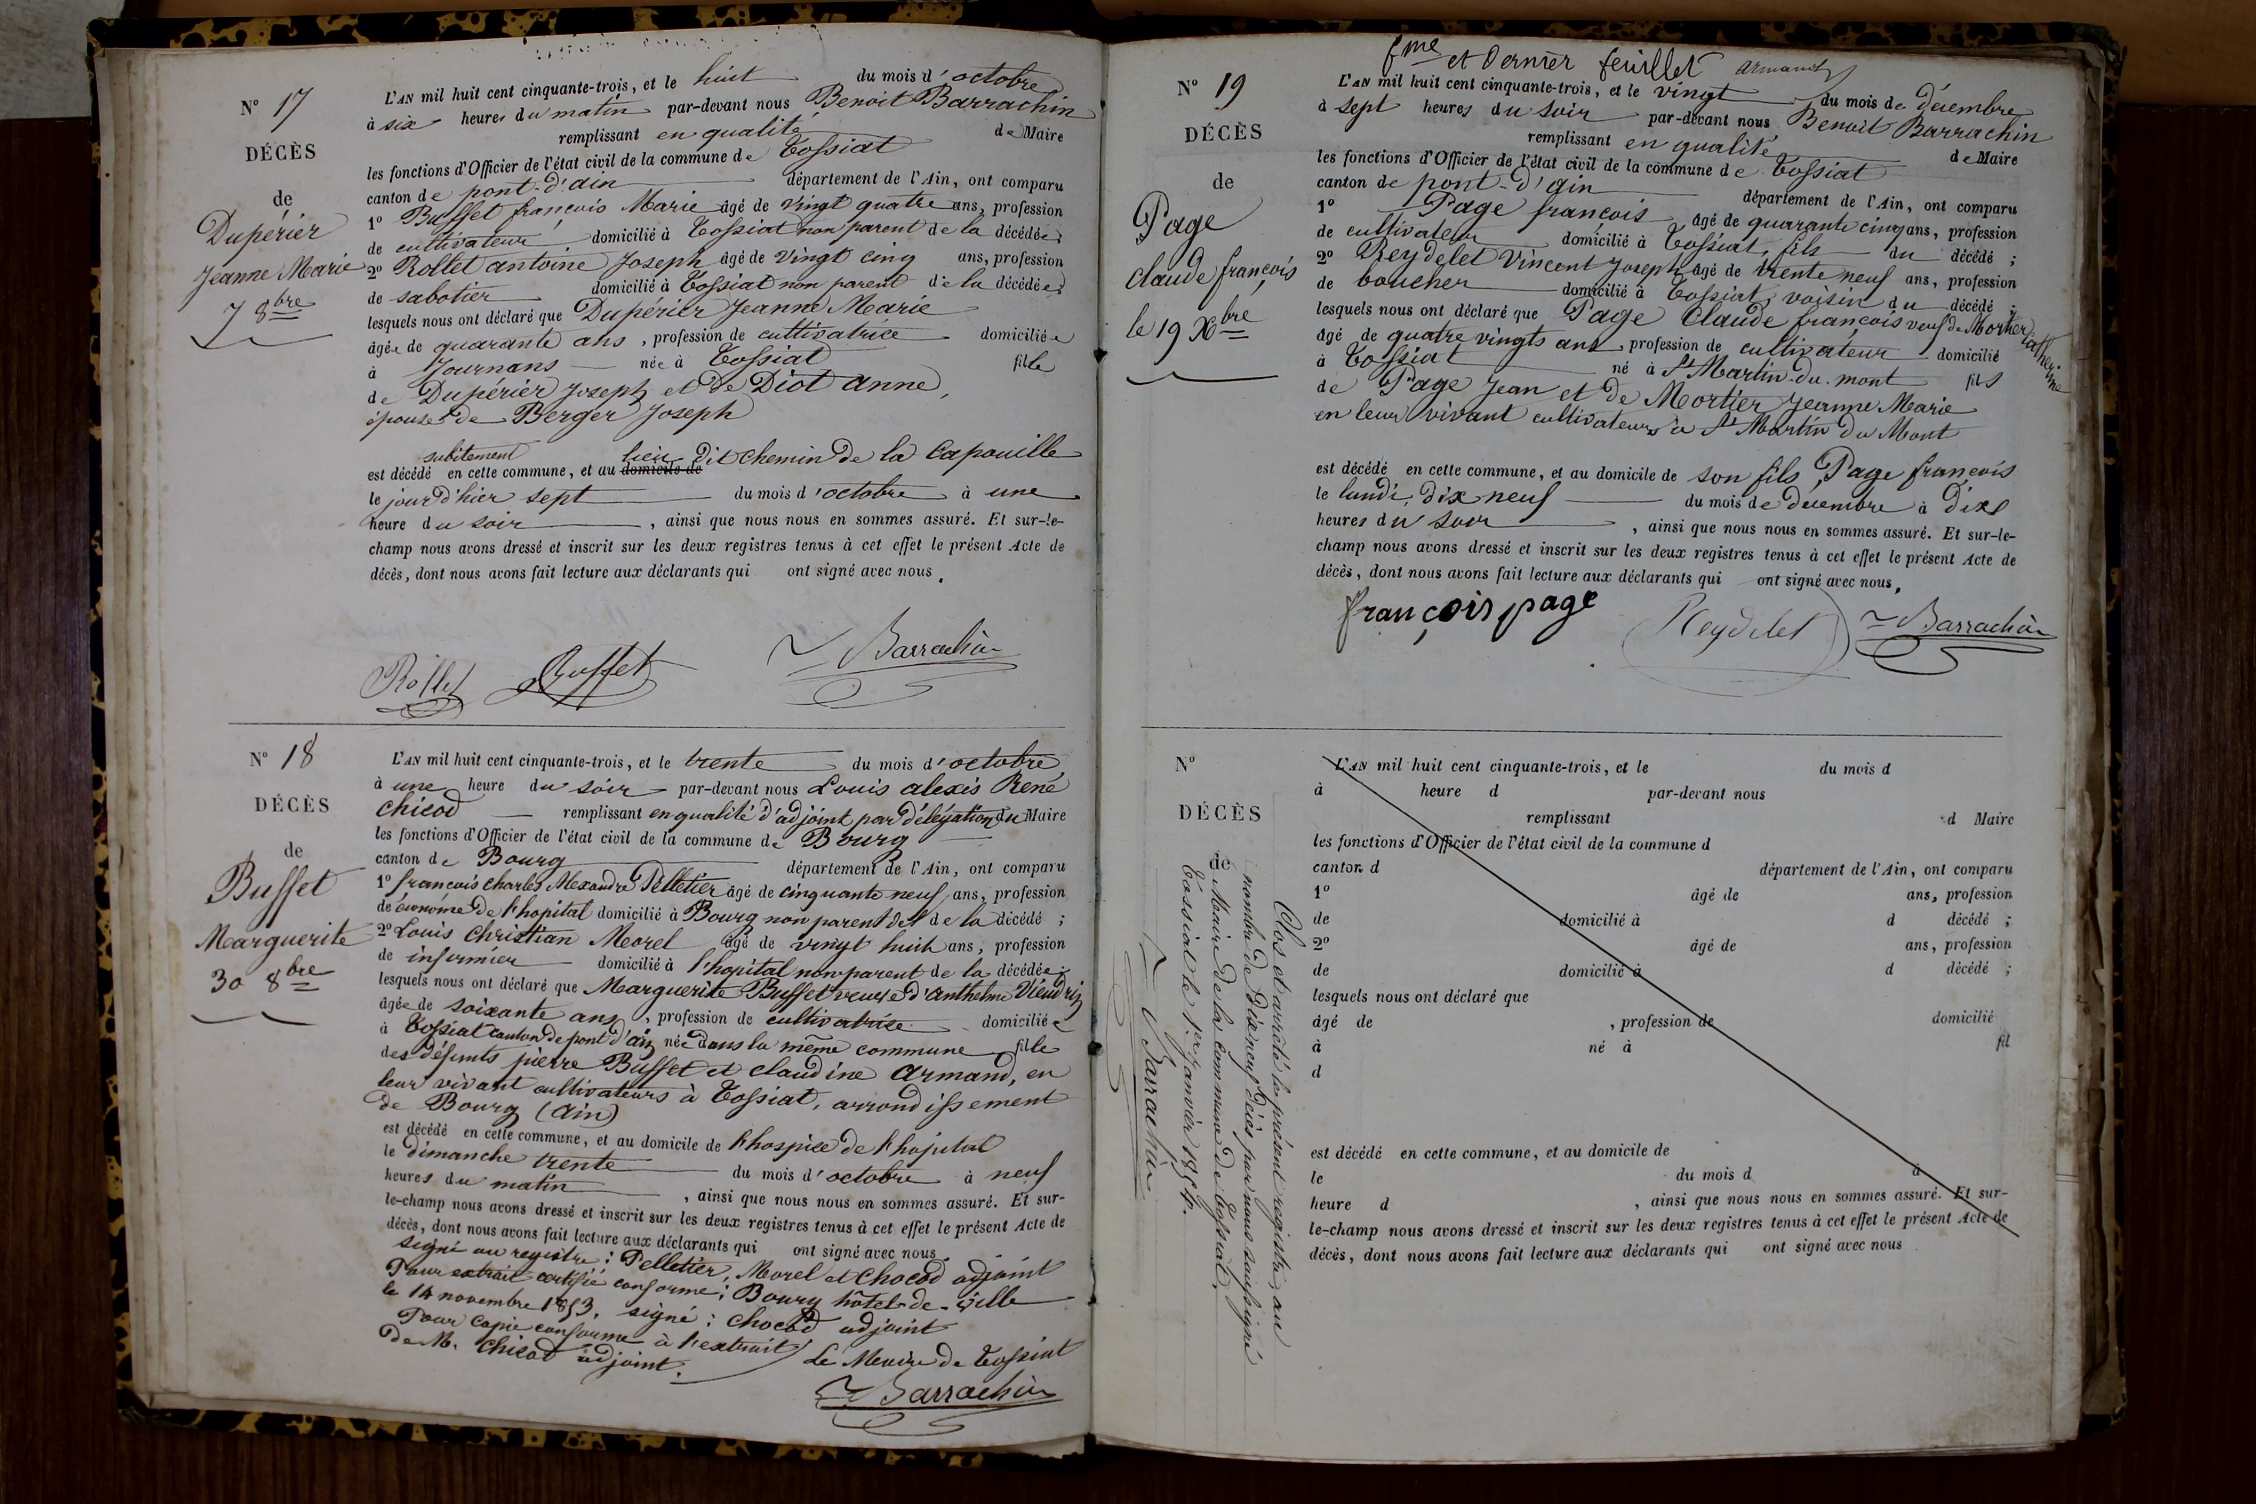 N° 17
DÉCÈS
de
Dupérier
Jeanne Marie
7 8bre
L'AN mil huit cent cinquante-trois, et le huit du mois d'octobre
à six heures du matin par-devant nous Benoit Barrachin
remplissant en qualité de Maire
les fonctions d'Officier de l'état civil de la commune de Tossiat
canton de pont-d'ain département de l'Ain, ont comparu
1° Buffet françois Marie âgé de vingt quatre ans, profession
de cultivateur domicilié à Tossiat non parent de la décédée;
2° Rollet antoine Joseph âgé de vingt cinq ans, profession
de sabotier domicilié à Tossiat non parent de la décédée;
lesquels nous ont déclaré que Dupérier Jeanne Marie
âgée de quarante ans, profession de cultivatrice domiciliée
à Journans née à Tossiat fille
de Dupérier Joseph et de Diot anne,
épouse de Berger Joseph
subitement lieu dit chemin de la Capouille
est décédé en cette commune, et au domicile de
le jour d'hier sept du mois d'octobre à une
heure du soir, ainsi que nous nous en sommes assuré. Et sur-le-
champ nous avons dressé et inscrit sur les deux registres tenus à cet effet le présent Acte de
décès, dont nous avons fait lecture aux déclarants qui ont signé avec nous.
Rollet Buffet Barrachin
N° 18
DÉCÈS
de
Buffet
Marguerite
30 8bre
L'AN mil huit cent cinquante-trois, et le trente du mois d'octobre
à une heure du soir par-devant nous Louis alexis René
Chicod remplissant en qualité d'adjoint par délégation du Maire
les fonctions d'Officier de l'état civil de la commune de Bourg
canton de Bourg département de l'Ain, ont comparu
1° françois Charles Alexandre Pelletier âgé de cinquante neuf ans, profession
de économe de l'hopital domicilié à Bourg non parent de la décédé;
2° Louis Christian Morel âgé de vingt huit ans, profession
de infirmier domicilié à l'hopital non parent de la décédée;
lesquels nous ont déclaré que Marguerite Buffet veuve d'anthelme
âgée de soixante ans, profession de cultivatrice domiciliée
à Tossiat canton de pont d'ain née dans la même commune fille
des défunts pierre Buffet et claudine armand, en
leur vivant cultivateurs à Tossiat, arrondissement
de Bourg (ain)
est décédé en cette commune, et au domicile de l'hospice de l'hopital
le dimanche trente du mois d'octobre à neuf
heures du matin, ainsi que nous nous en sommes assuré. Et sur-
le-champ nous avons dressé et inscrit sur les deux registres tenus à cet effet le présent Acte de
décès, dont nous avons fait lecture aux déclarants qui ont signé avec nous.
signé au registre: Pelletier, Morel et Chocod adjoint
Pour extrait certifié conforme: Bourg hôtel-de-ville
le 14 novembre 1853. signé: Chocod adjoint
Pour copie conforme à l'extrait
de M. Chicod adjoint.
Le Maire de Tossiat
Barrachin
et dernier feuillet armand
N° 19
DÉCÈS
de
Page
Claude françois
le 19 Xbre
L'AN mil huit cent cinquante-trois, et le vingt du mois de décembre
à sept heures du soir par-devant nous Benoit Barrachin
remplissant en qualité de Maire
les fonctions d'Officier de l'état civil de la commune de Tossiat
canton de pont-d'ain département de l'Ain, ont comparu
1° Page françois âgé de quarante cinq ans, profession
de cultivateur domicilié à Tossiat, fils du décédé;
2° Reydelet Vincent Joseph âgé de trente neuf ans, profession
de boucher domicilié à Tossiat, voisin du décédé;
lesquels nous ont déclaré que Page Claude françois veuf de Mortier Catherine
âgé de quatre vingts ans, profession de cultivateur domicilié
à Tossiat né à St Martin-du-mont fils
de Page Jean et de Mortier Jeanne Marie
en leur vivant cultivateurs à St Martin du Mont
est décédé en cette commune, et au domicile de son fils, Page françois
le lundi, dix neuf du mois de décembre à dix
heures du soir, ainsi que nous nous en sommes assuré. Et sur-le-
champ nous avons dressé et inscrit sur les deux registres tenus à cet effet le présent Acte de
décès, dont nous avons fait lecture aux déclarants qui ont signé avec nous.
françois page Reydelet Barrachin
N°
DÉCÈS
de
L'AN mil huit cent cinquante-trois, et le du mois d
à heure d par-devant nous
remplissant d Maire
les fonctions d'Officier de l'état civil de la commune d
canton d département de l'Ain, ont comparu
1° âgé de ans, profession
de domicilié à d décédé;
2° âgé de ans, profession
de domicilié à d décédé;
lesquels nous ont déclaré que
âgé de, profession de domicilié
à né à fil
d
est décédé en cette commune, et au domicile de
le du mois d à
heure d, ainsi que nous nous en sommes assuré. Et sur-
le-champ nous avons dressé et inscrit sur les deux registres tenus à cet effet le présent Acte de
décès, dont nous avons fait lecture aux déclarants qui ont signé avec nous
Clos et arrêté le présent registre, au
nombre de dix neuf décès par nous soussigné
Maire de la commune de Tossiat,
Tossiat le 1er janvier 1854.
Barrachin